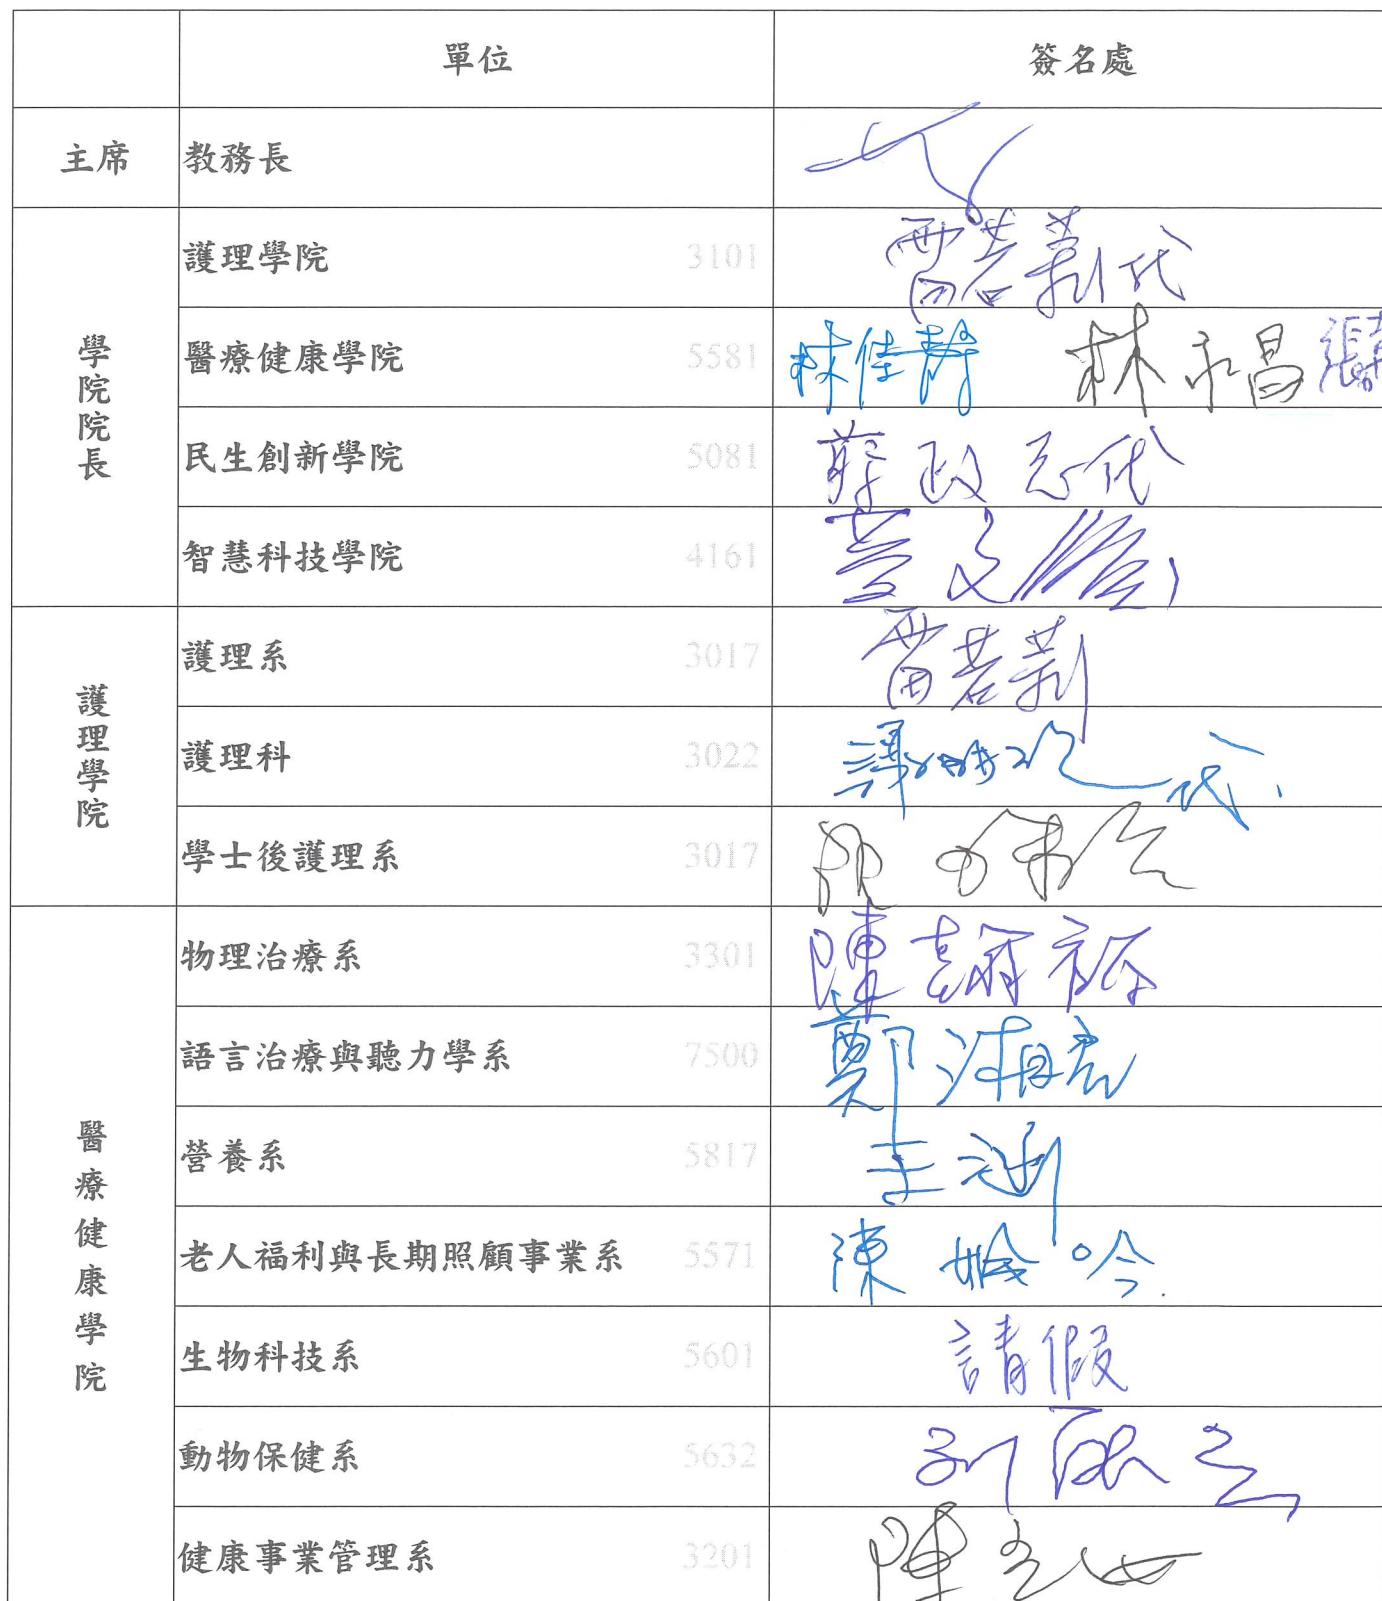 單位 簽名處
主席 教務長
學院院長
護理學院 3101 雷若莉代
醫療健康學院 5581 林佳靜 林永昌
民生創新學院 5081 政志代
智慧科技學院 4161 黃文
護理學院
護理系 3017 雷若莉
護理科 3022 代
學士後護理系 3017
醫療健康學院
物理治療系 3301 陳
語言治療與聽力學系 7500 鄭
營養系 5817 李涵
老人福利與長期照顧事業系 5571 陳 吟
生物科技系 5601 請假
動物保健系 5632
健康事業管理系 3201 陳